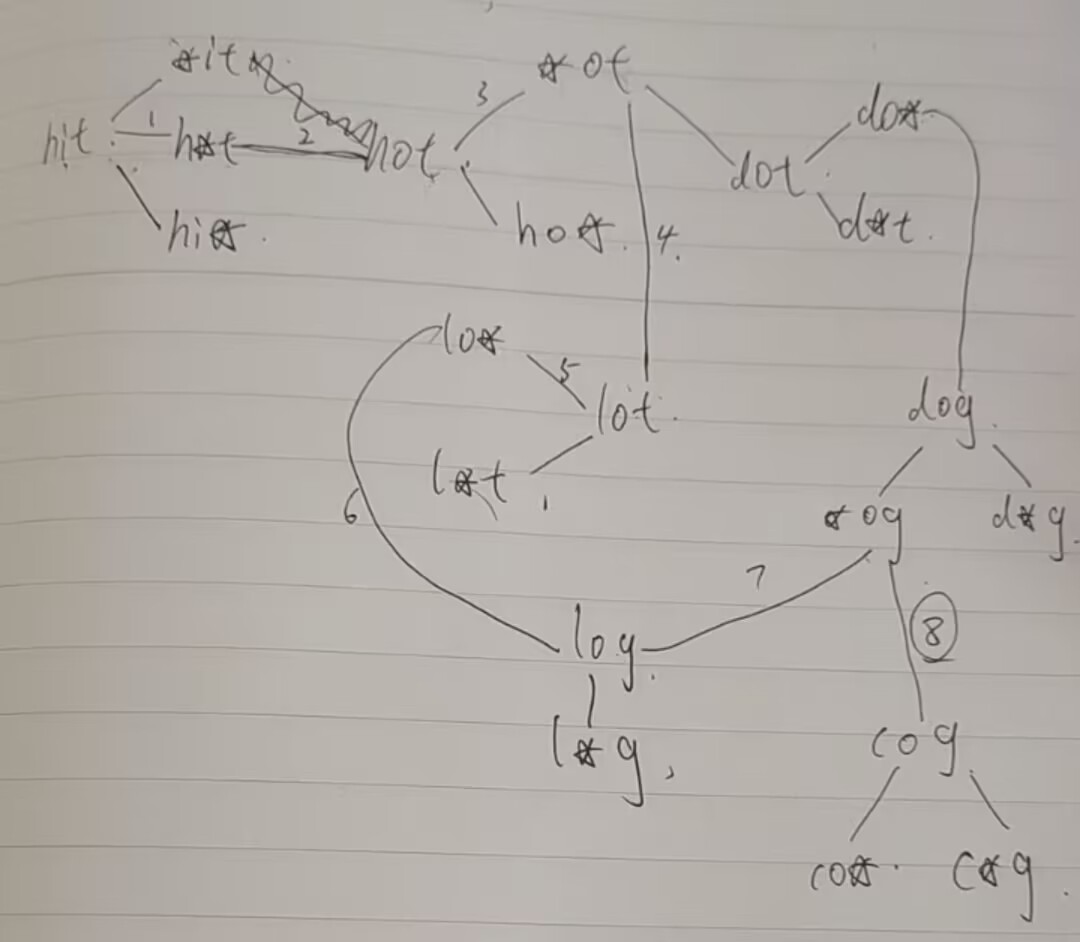 *it
hit 1 h*t 2 hot 3 *ot
hi*. ho*. 4.
dot. do*
d*t.
lo* 5 lot.
l*t.
dog.
6 *og d*g.
7
log. ⑧
l*g, cog
co*. c*g.